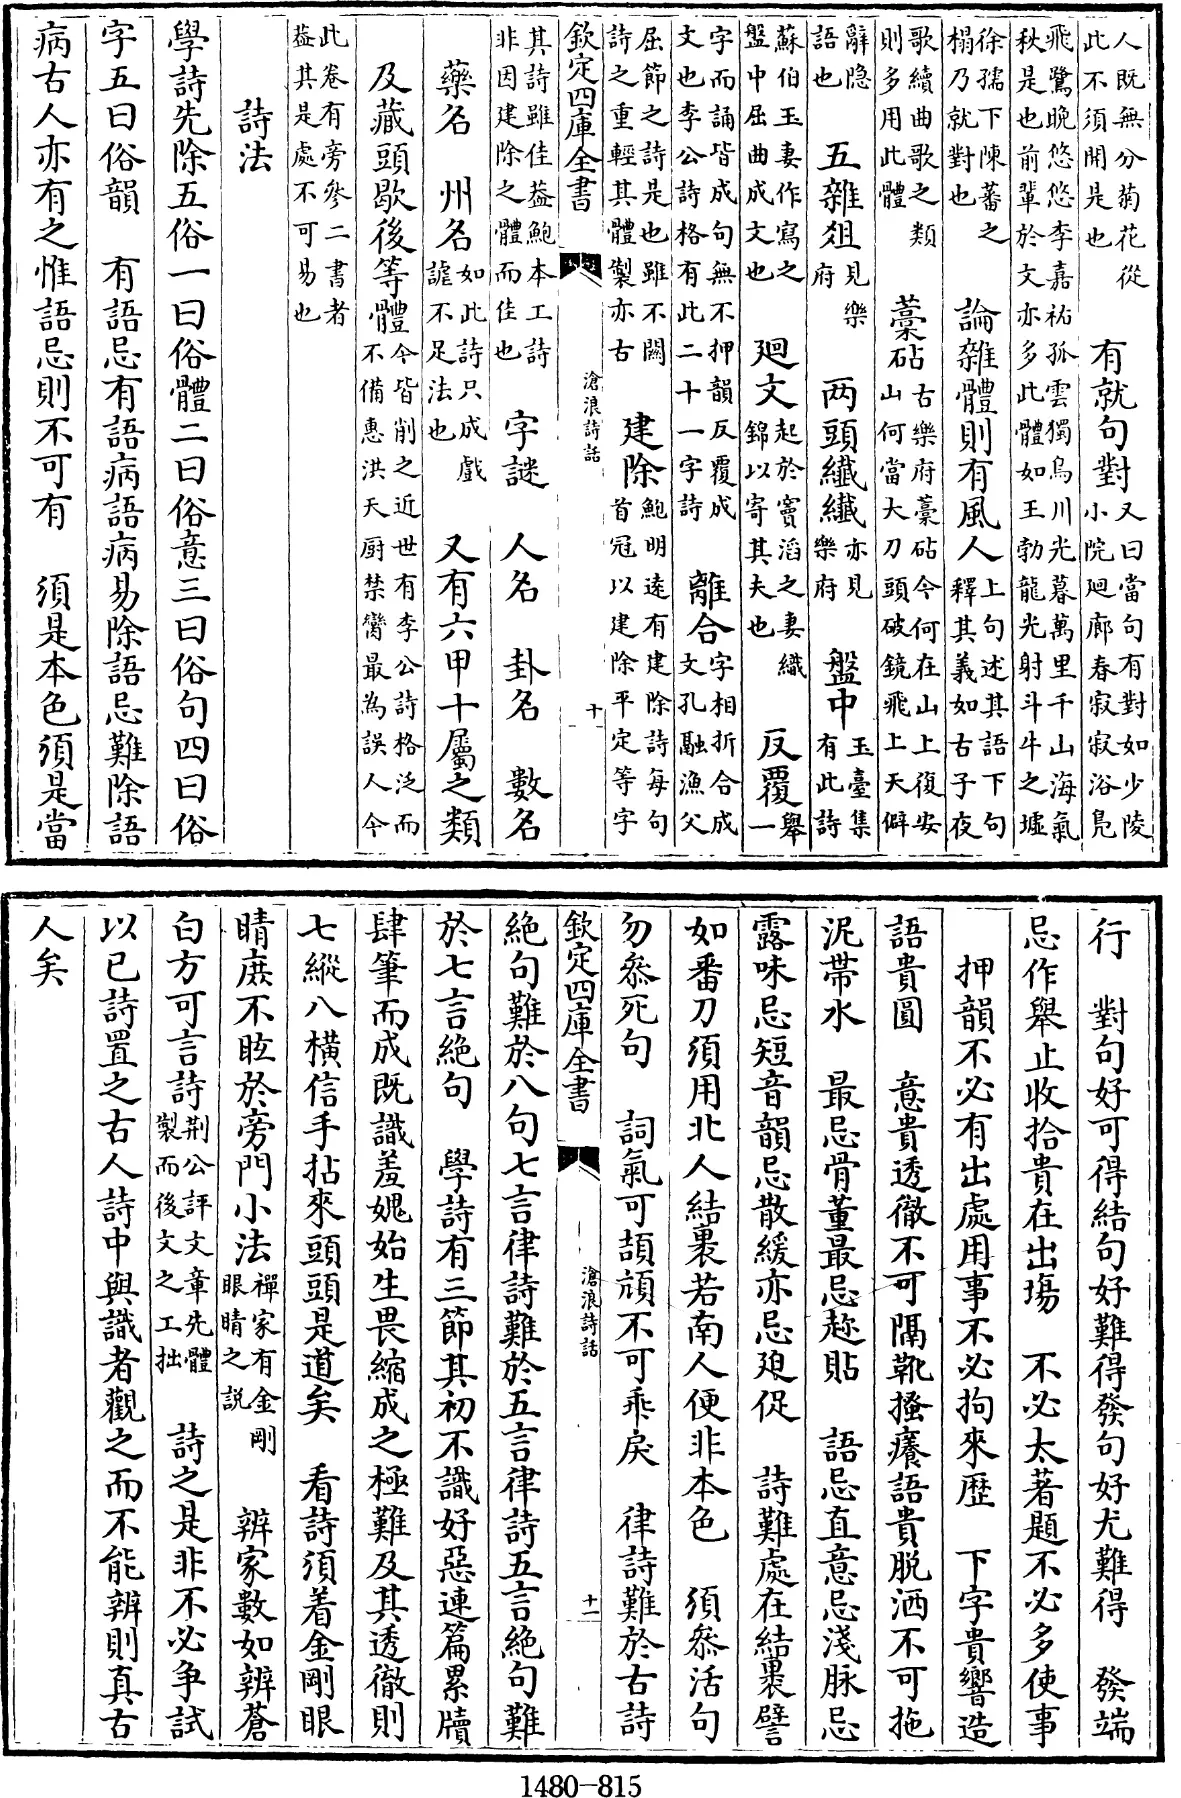 人既無分菊花從此不須開是也 有就句對 又曰當句有對如少陵小院廻廊春寂寂浴鳧
飛鷺晚悠悠李嘉祐孤雲獨鳥川光暮萬里千山海氣秋是也前輩於文亦多此體如王勃龍光射斗牛之墟
徐孺下陳蕃之榻乃就對也 論雜體則有風人 上句述其語下句釋其義如古子夜
歌續曲歌之類則多用此體 藁砧 古樂府藁砧今何在山上復安山何當大刀頭破鏡飛上天僻
辭隐語也 五雜俎 見樂府 两頭纖纖 亦見樂府 盤中 玉臺集有此詩
蘇伯玉妻作寫之盤中屈曲成文也 廻文 起於竇滔之妻織錦以寄其夫也 反覆 舉一
字而誦皆成句無不押韻反覆成文也李公詩格有此二十一字詩 離合 字相折合成文孔融漁父
屈節之詩是也雖不關詩之重輕其體製亦古 建除 鮑明遠有建除詩每句首冠以建除平定等字
欽定四庫全書 滄浪詩話 十
其詩雖佳葢鮑本工詩非因建除之體而佳也 字謎 人名 卦名 數名
藥名 州名 如此詩只成戲謔不足法也 又有六甲十屬之類
及藏頭歇後等體 今皆削之近世有李公詩格泛而不備惠洪天厨禁臠最為誤人今
此卷有旁參二書者葢其是處不可易也
詩法
學詩先除五俗一曰俗體二曰俗意三曰俗句四曰俗
字五曰俗韻 有語忌有語病語病易除語忌難除語
病古人亦有之惟語忌則不可有 須是本色須是當
行 對句好可得結句好難得發句好尤難得 發端
忌作舉止收拾貴在出場 不必太著題不必多使事
押韻不必有出處用事不必拘來歴 下字貴響造
語貴圓 意貴透徹不可隔靴搔癢語貴脱洒不可拖
泥帶水 最忌骨董最忌趂貼 語忌直意忌淺脉忌
露味忌短音韻忌散緩亦忌廹促 詩難處在結裹譬
如番刀須用北人結裹若南人便非本色 須叅活句
勿叅死句 詞氣可頡頏不可乖戾 律詩難於古詩
欽定四庫全書 滄浪詩話 十一
絕句難於八句七言律詩難於五言律詩五言絕句難
於七言絕句 學詩有三節其初不識好惡連篇累牘
肆筆而成既識羞媿始生畏縮成之極難及其透徹則
七縱八橫信手拈來頭頭是道矣 看詩須着金剛眼
睛庶不眩於旁門小法 禪家有金剛眼睛之説 辨家數如辨蒼
白方可言詩 荆公評文章先體製而後文之工拙 詩之是非不必争試
以已詩置之古人詩中與識者觀之而不能辨則真古
人矣
1480-815